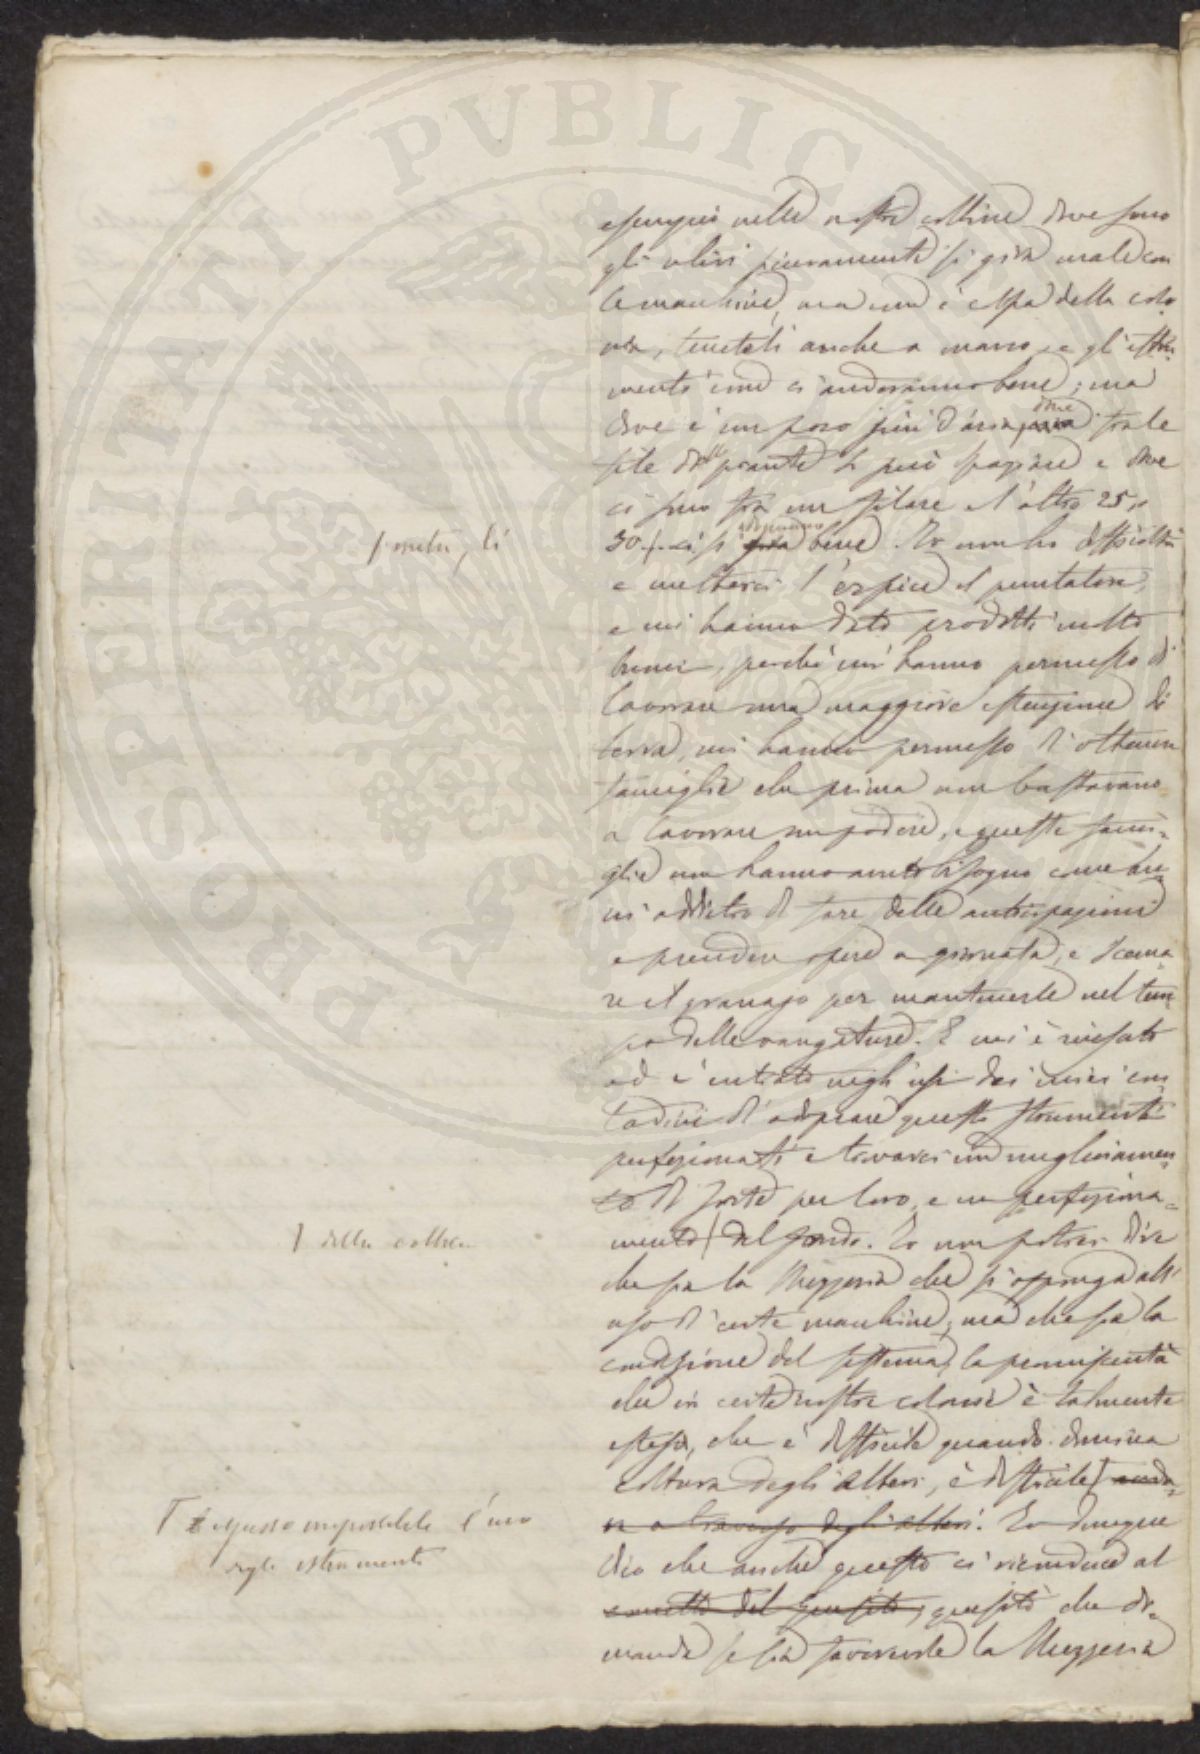 esempio nelle nostre colline dove sono
gli ulivi sicuramente si gira male con
le macchine, ma non è colpa della colo
nia, teneteli anche a mano e gl'istru
menti non ci anderanno bene; ma
dove è un poco più d'aria, dove tra le
file delle piante si può spaziare e dove
ci sono tra un filare e l'altro 25, o
30 ci si adoprano bene. Io non ho difficoltà
a metterci l'erpice e
e mi hanno dato prodotti molto
buoni, perché mi hanno permesso di
lavorare una maggiore estensione di
terra, mi hanno permesso d'ottenere
famiglie che prima non bastavano
a lavorare un podere, e queste fami=
glie non hanno avuto bisogno come
addietro di fare delle anticipazioni
e prendere opere a giornata, e scema
re il granajo per mantenerle nel tem
po delle vangature. E mi è riuscito
ed è entrato negli usi dei miei con
tadini d'adoprare questi strumenti
perfezionati e trovarci un miglioramen
to di sorte per loro, e un perfeziona=
mento del fondo. Io non potrei dire
che sia la Mezzeria che si opponga all'
uso di certe macchine, ma che sia la
condizione del sistema, la promiscuità
che in certe nostre colonie è talmente
estesa, che è difficile quando
coltura degli alberi, è difficile anda=
re a traverso degli alberi. Io dunque
dico che anche questo ci riconduce al
concetto del quesito, quesito che do=
manda se sia favorevole la Mezzeria
metri, ci
della coltura
e spesso impossibile l'uso
degli istrumenti
PROSPERITATI PVBLIC